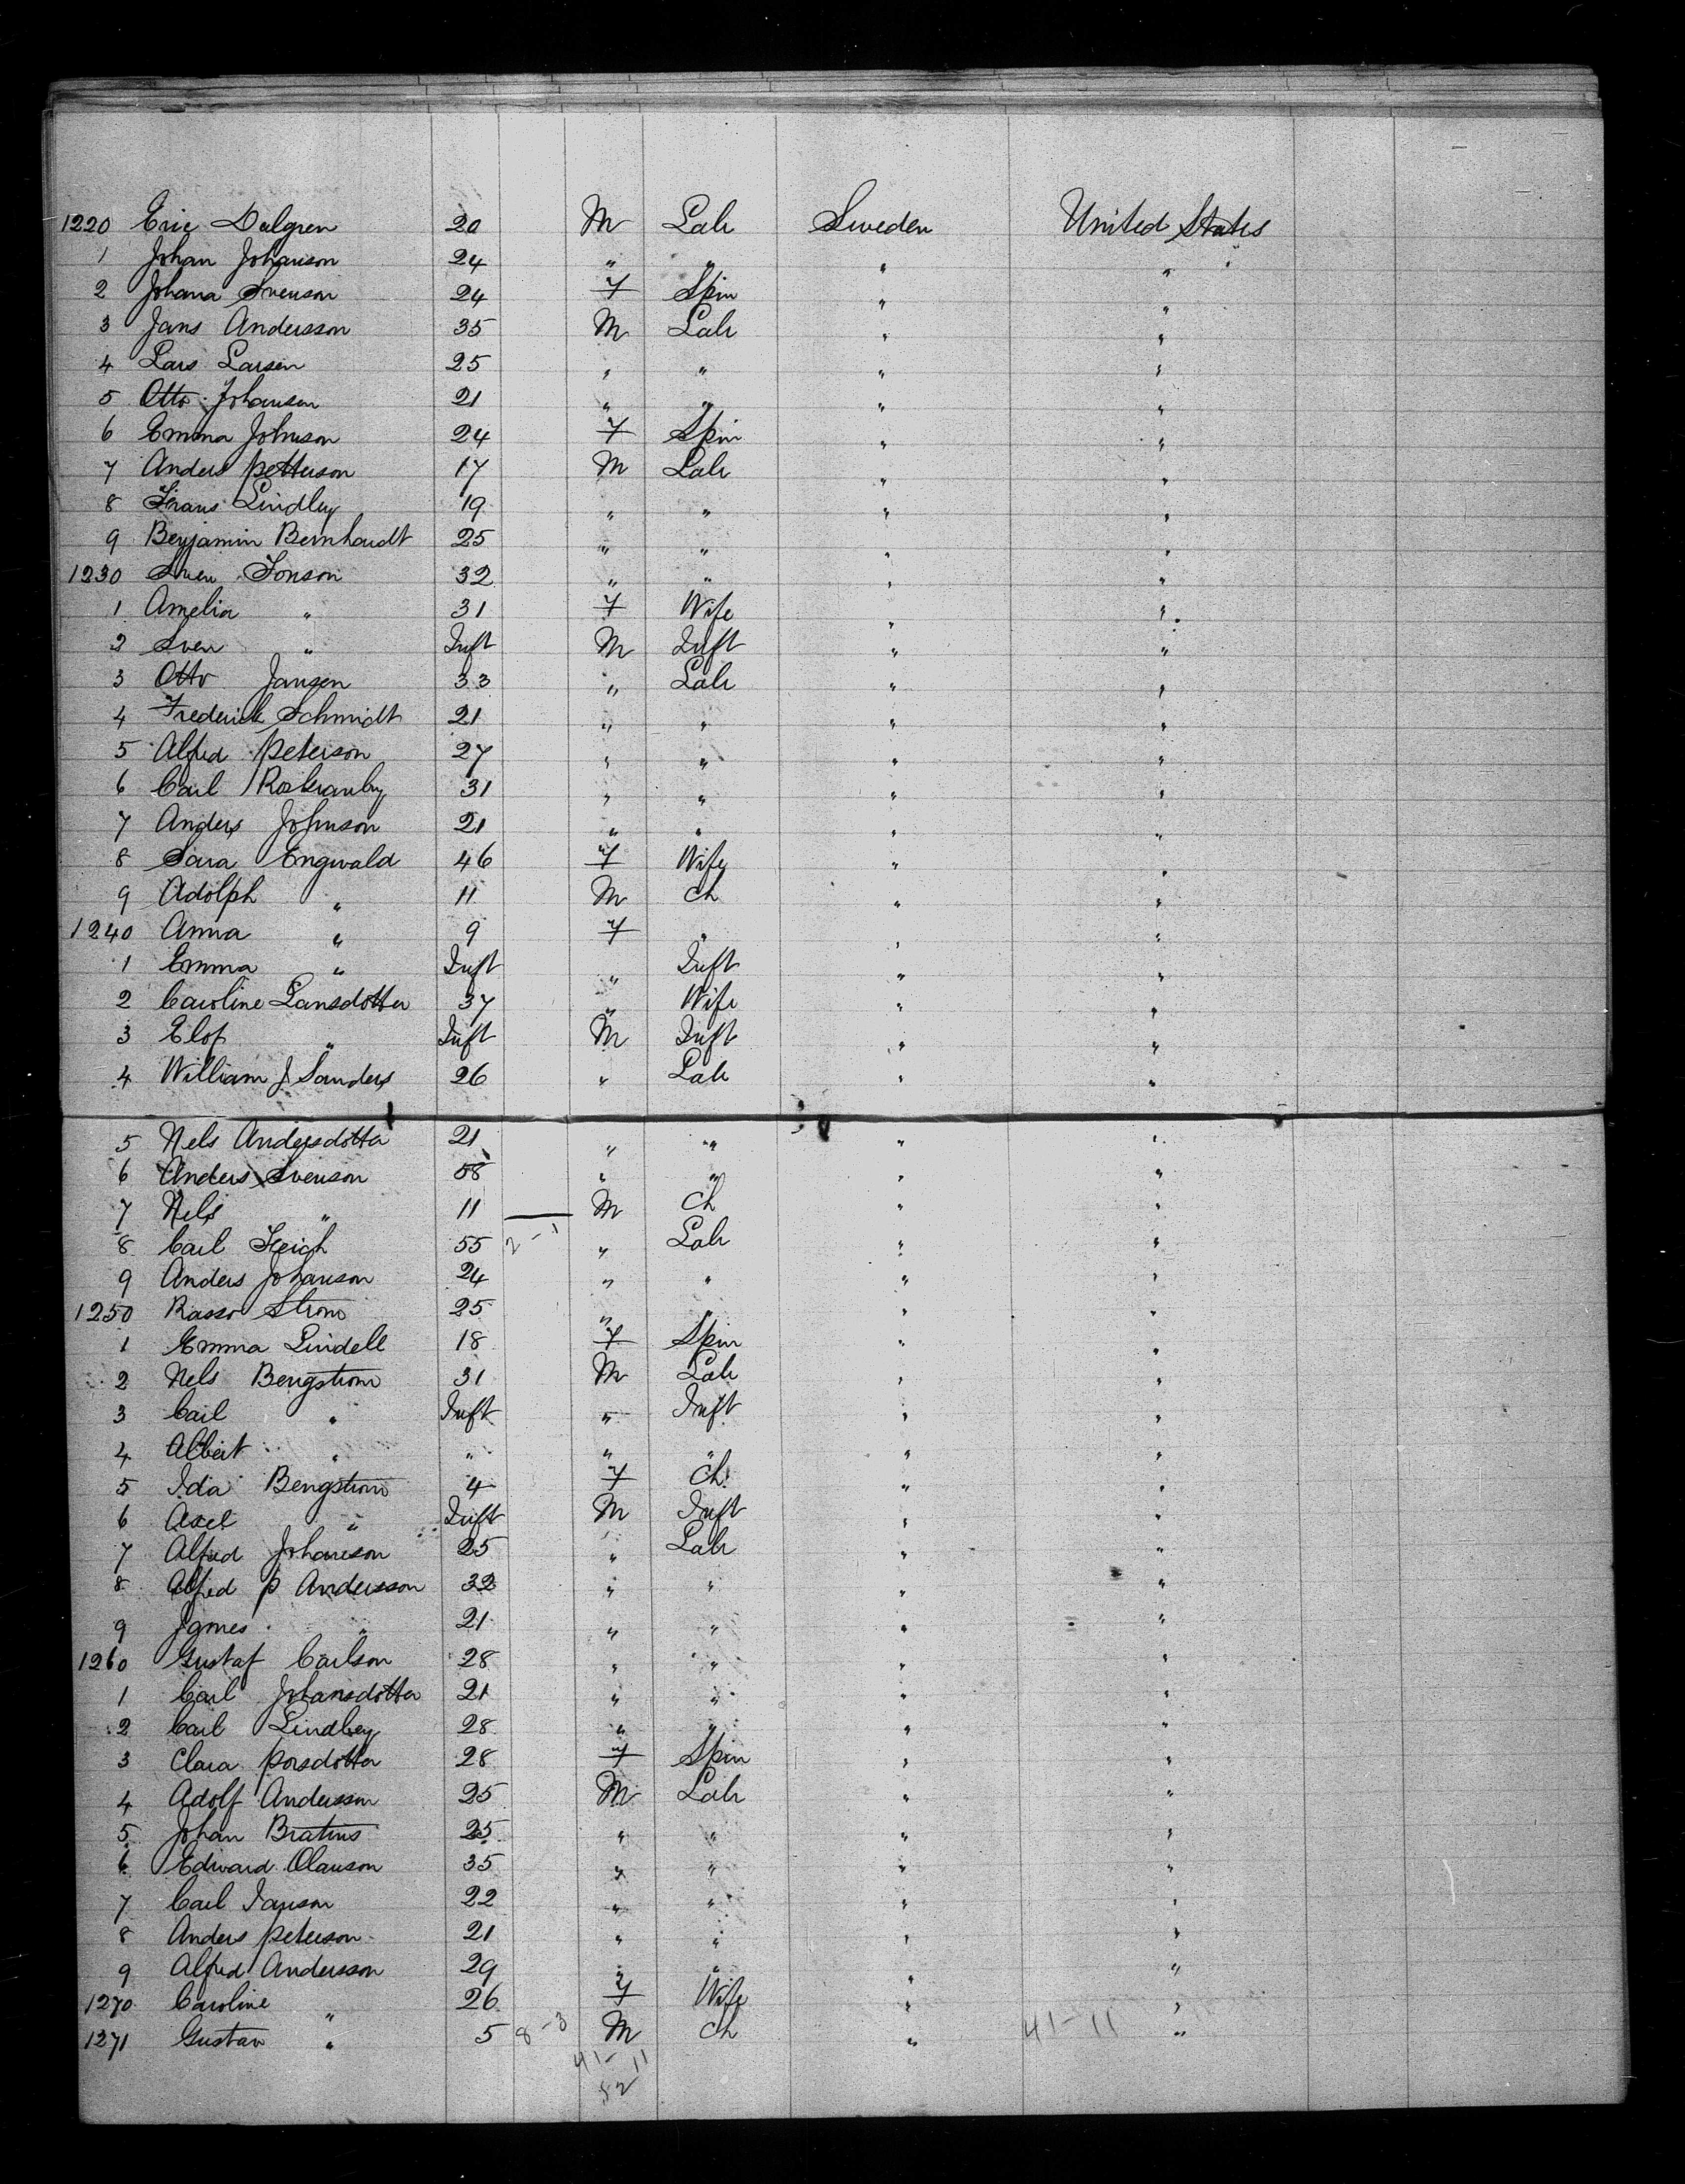 1220 Eric Dalgren 20 M Labr Sweden United States
1 Johan Johanson 24 " " " "
2 Johana Svenson 24 F Spin " "
3 Jans Andersson 35 M Labr " "
4 Lars Larsen 25 " " " "
5 Otto Johansen 21 " " " "
6 Emma Johnson 24 F Spin " "
7 Anders Petterson 17 M Labr " "
8 Frans Lindley 19 " " " "
9 Benjamin Bernhardt 25 " " " "
1230 Sven Jonson 32 " " " "
1 Amelia " 31 F Wife " "
2 Sven " Inft M Inft " "
3 Otto Jansen 33 " Labr " "
4 Frederick Schmidt 21 " " " "
5 Alfred Peterson 27 " " " "
6 Carl 31 " " " "
7 Anders Johnson 21 " " " "
8 Sara Engwald 46 F Wife " "
9 Adolph " 11 M Ch " "
1240 Anna " 9 F " " "
1 Emma " Inft " Inft " "
2 Caroline Lansdotter 37 " Wife " "
3 Elof " Inft M Inft " "
4 William J Sanders 26 " Labr " "
5 Nels Andersdotter 21 " " " "
6 Anders Svenson 58 " " " "
7 Nels " 11 M Ch " "
8 Carl 55 2-1 " Labr " "
9 Anders Johanson 24 " " " "
1250 Rasso Strom 25 " " " "
1 Emma Lindell 18 F Spin " "
2 Nels Bengstrom 31 M Labr " "
3 Carl " Inft " Inft " "
4 Albert " " " " " "
5 Ida Bengstrom 4 F Ch " "
6 Axel " Inft M Inft " "
7 Alfred Johanson 25 " Labr " "
8 Alfred P Andersson 32 " " " "
9 James " 21 " " " "
1260 Gustaf Carlson 28 " " " "
1 Carl Johansdotter 21 " " " "
2 Carl Lindbey 28 " " " "
3 Clara Porsdotter 28 F Spin " "
4 Adolf Andersson 25 M Labr " "
5 Johan Bratins 25 " " " "
6 Edward Olauson 35 " " " "
7 Carl Janson 22 " " " "
8 Anders Peterson 21 " " " "
9 Alfred Andersson 29 " " " "
1270 Caroline " 26 F Wife " "
1271 Gustav " 5 8-3 M Ch " 41-11 "
41-11
52